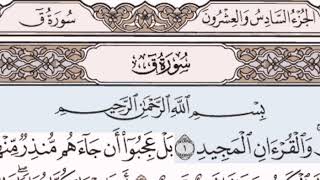 الجزء السادس والعشرون سورة ق
سورة ق
بسم الله الرحمن الرحيم
وَالْقُرْءَانِ الْمَجِيدِ ١ بَلْ عَجِبُوا أَن جَاءَهُم مُّنذِرٌ مِّنْهُ